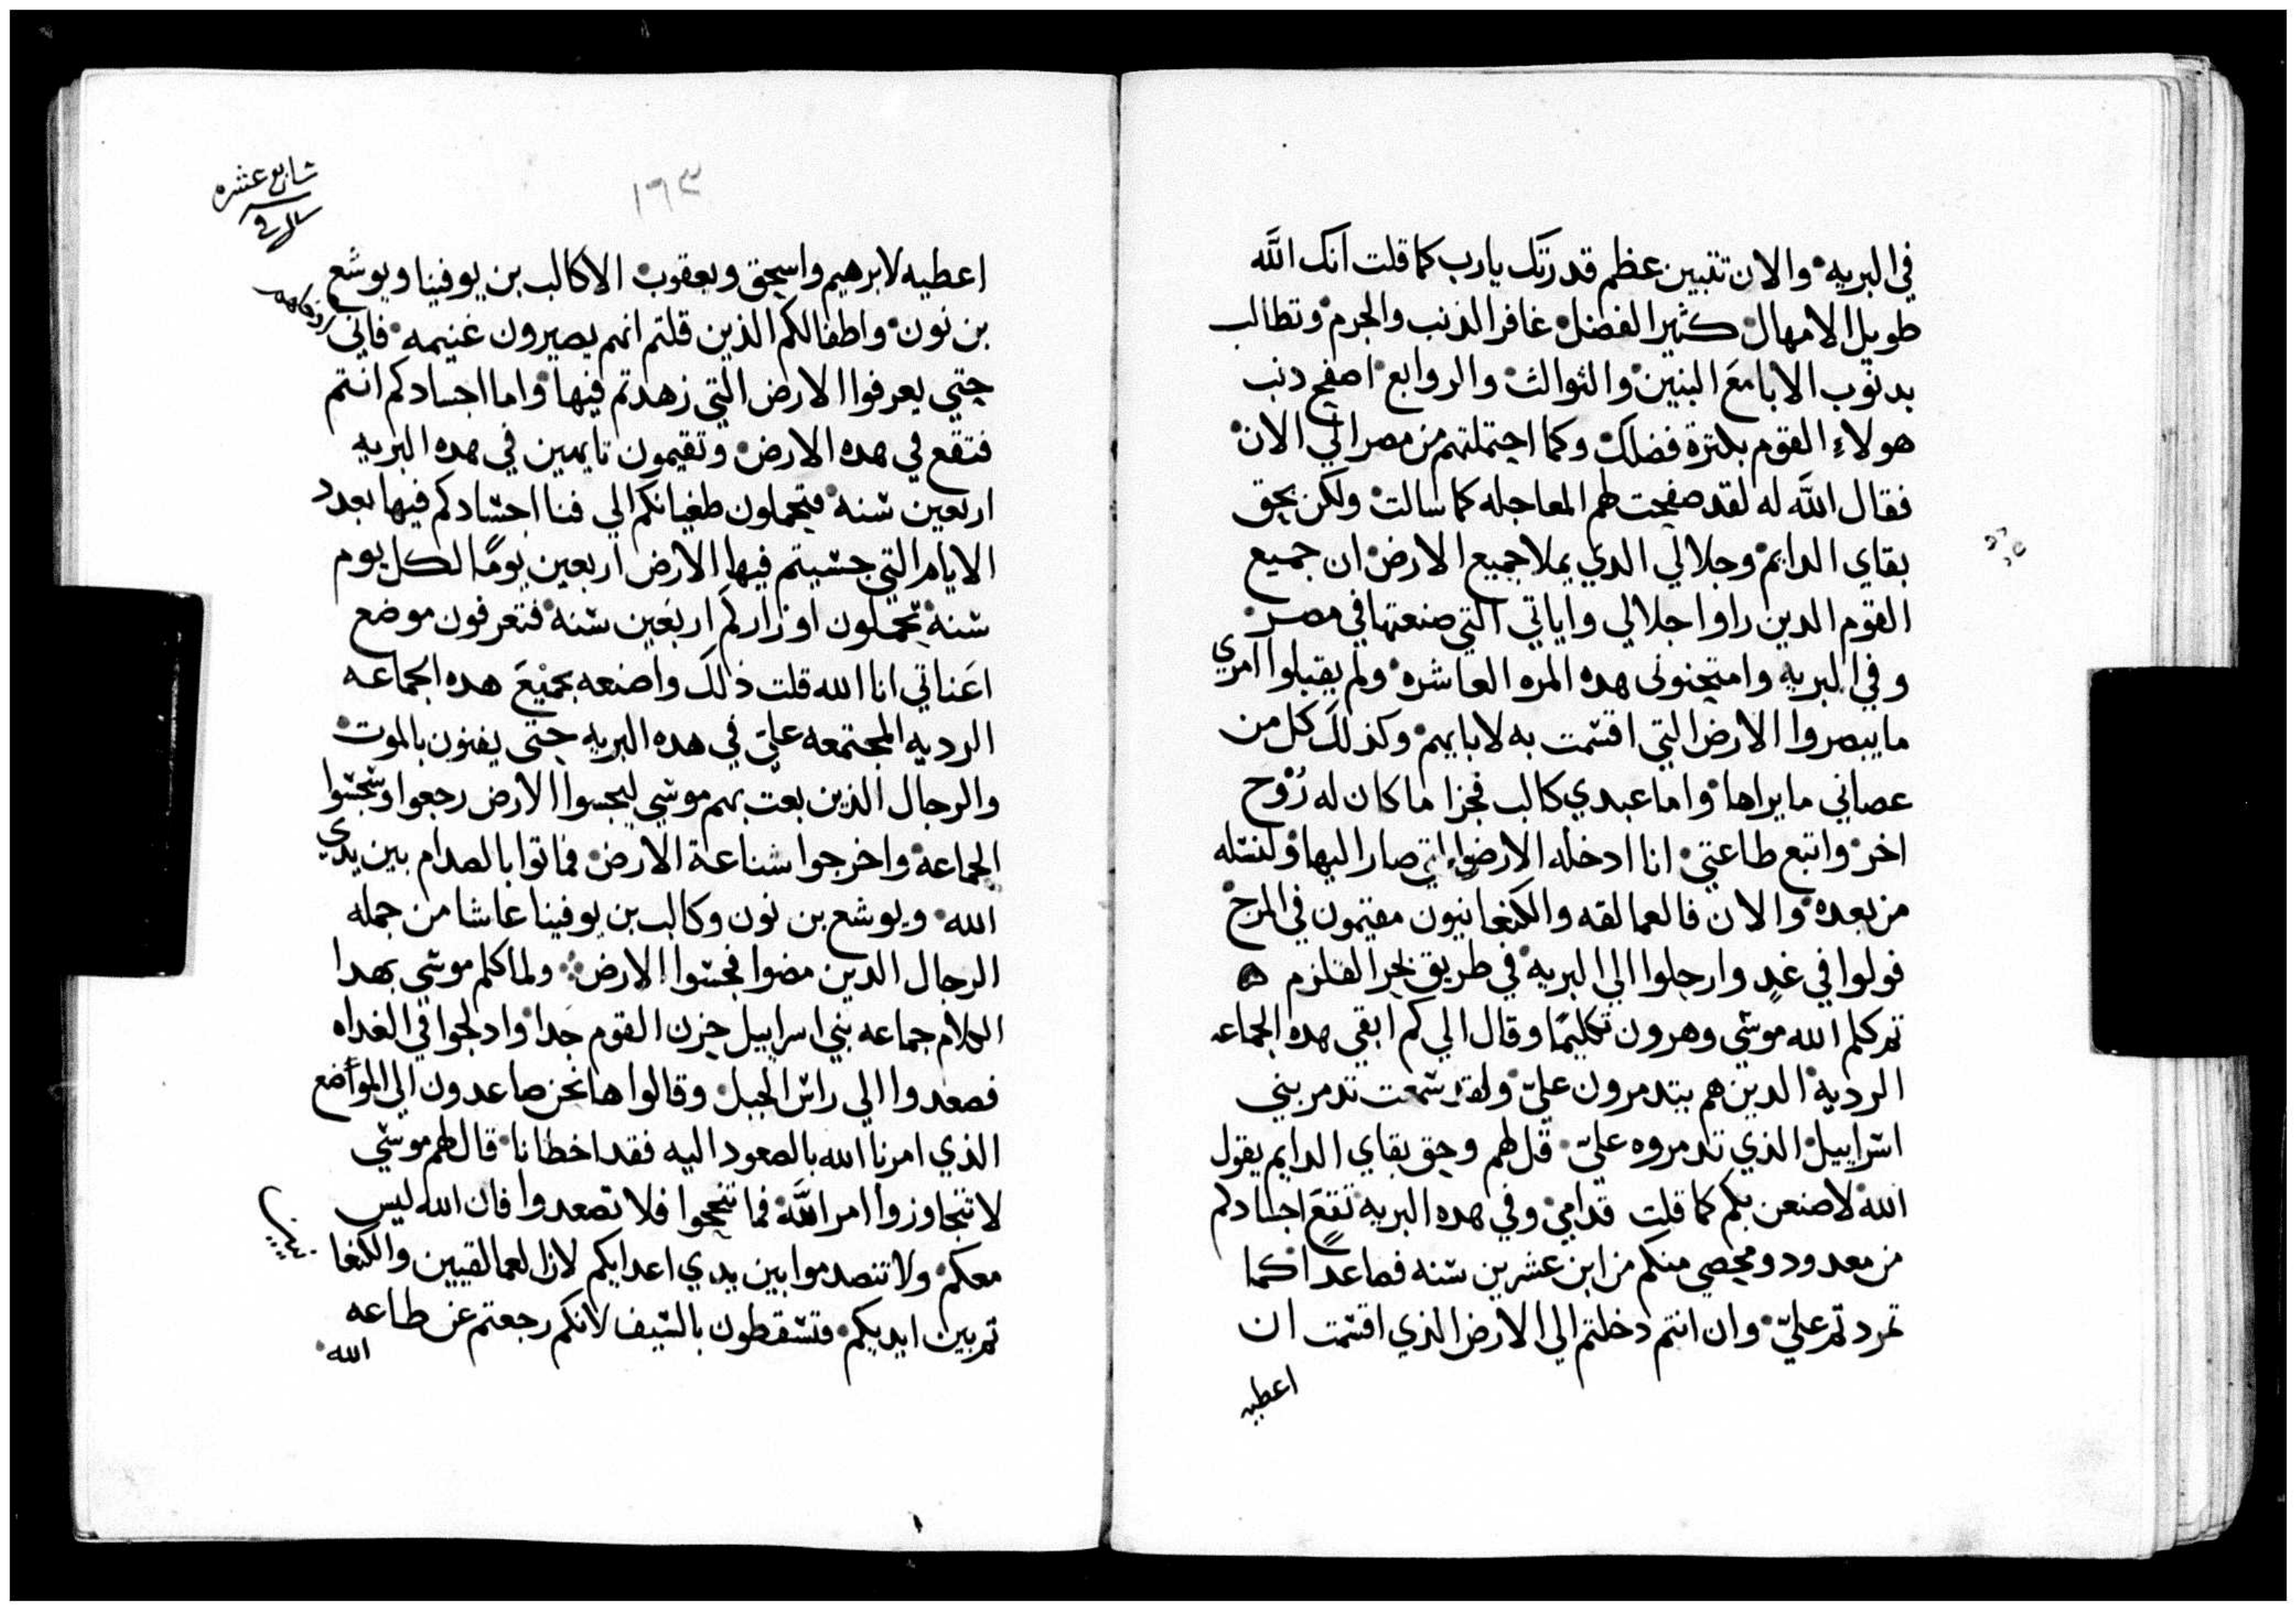 في البريه والان تتبين عظم قدرتك يارب كما قلت انك اللَّه
طويل الامهال كثير الفضل غافر الذنب والجرم وتطالب
بدنوب الابا مع البنين والثوالث والروابع اصفح دنب
هولاء القوم بكثرة فضلك وكما احتملتهم من مصر الي الان
فقال اللَّه له لقد صفحت لهم المعاجله كما سالت ولكن بحق
بقاي الدايم وجلالي الدي يملا جميع الارض ان جميع
القوم الدين راوا جلالي واياتي التي صنعتها في مصر
وفي البريه وامتحنوني هده المره العاشره ولم يقبلوا امري
ما يبصروا الارض التي اقسمت به لابايهم وكذلك كل من
عصاني ما يراها واما عبدي كالب فجزا ما كان له رُوْح
اخر واتبع طاعتي انا ادخله الارض التي صار اليها ولنسله
من بعده والان فالعمالقه والكنعانيون مقيمون في المرج
فولوا في غدٍ وارحلوا الي البريه في طريق بحر القلزم
ثم كلم الله موسي وهرون تكليمًا وقال الي كم ابقي هده الجماعه
الرديه الدين هم يتدمرون عليّ ولقد سمعت تدمر بني
اسراييل الذي تدمروه عليّ قل لهم وحق بقاي الدايم يقول
الله لاصنعن بكم كما قلت قدامي وفي هده البريه تقع اجسادكم
من معدود ومحصي منكم من ابن عشرين سنه فصاعدًا كما
تمردتم عليّ وان انتم دخلتم الي الارض الذي اقسمت ان
اعطيه
١٦٣
اعطيه لابرهيم واسحق ويعقوب الا كالب بن يوفينا ويوشع
بن نون واطفالكم الذين قلتم انهم يصيرون غنيمه فاني
حتي يعرفوا الارض التي زهدتم فيها واما اجسادكم انتم
فتقع في هده الارض وتقيمون تايهين في هده البريه
اربعين سنه فتحملون طغيانكم الي فنا اجسادكم فيها بعدد
الايام التي جسيتم فيها الارض اربعين يومًا لكل يوم
سنه تحملون اوزاركم اربعين سنه فتعرفون موضع
اعناتي انا الله قلت ذلك واصنعه بجميع هده الجماعه
الرديه المجتمعه عليّ في هده البريه حتى يفنون بالموت
والرجال الذين بعت بهم موسي ليجسوا الارض رجعوا وسجسوا
الجماعه واخرجوا شناعة الارض فماتوا بالصدام بين يدي
الله ويوشع بن نون وكالب بن يوفينا عاشا من جمله
الرجال الدين مضوا فجسوا الارض ولما كلم موسي بهدا
الكلام جماعه بني اسراييل حزن القوم جدا وادلجوا في الغداه
فصعدوا الي راس الجبل وقالوا ها نحن صاعدون الي المواضع
الذي امرنا الله بالصعود اليه فقد اخطانا قال لهم موسي
لا تتجاوزوا امر اللَّه فما تنجحوا فلا تصعدوا فان الله ليس
معكم ولا تتصدموا بين يدي اعدايكم لان العمالقيين والكنعا
تم بين ايديكم فتسقطون بالسيف لانكم رجعتم عن طاعه
الله